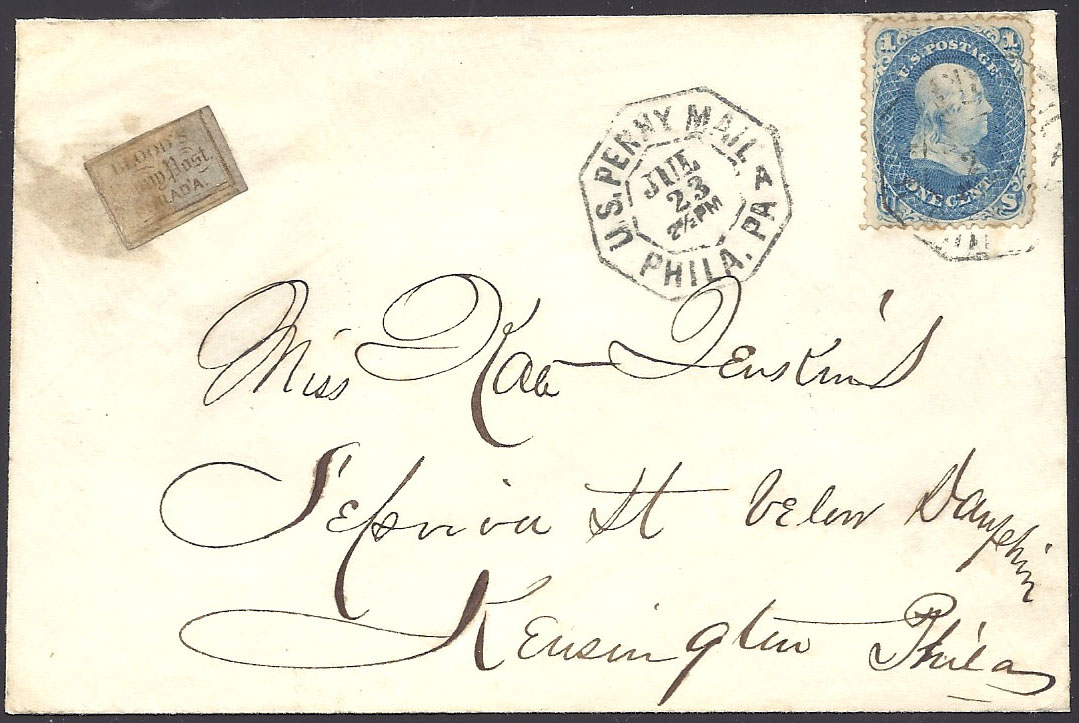 BLOOD'S
Penny Post
PHILAD'A.
U.S. PENNY MAIL
JUL
23
2½PM
PHILA. PA
1 1
U.S. POSTAGE
ONE CENT
U S
Miss Kate Jenskins
Sepviva St below Dauphin
Kensington Phila